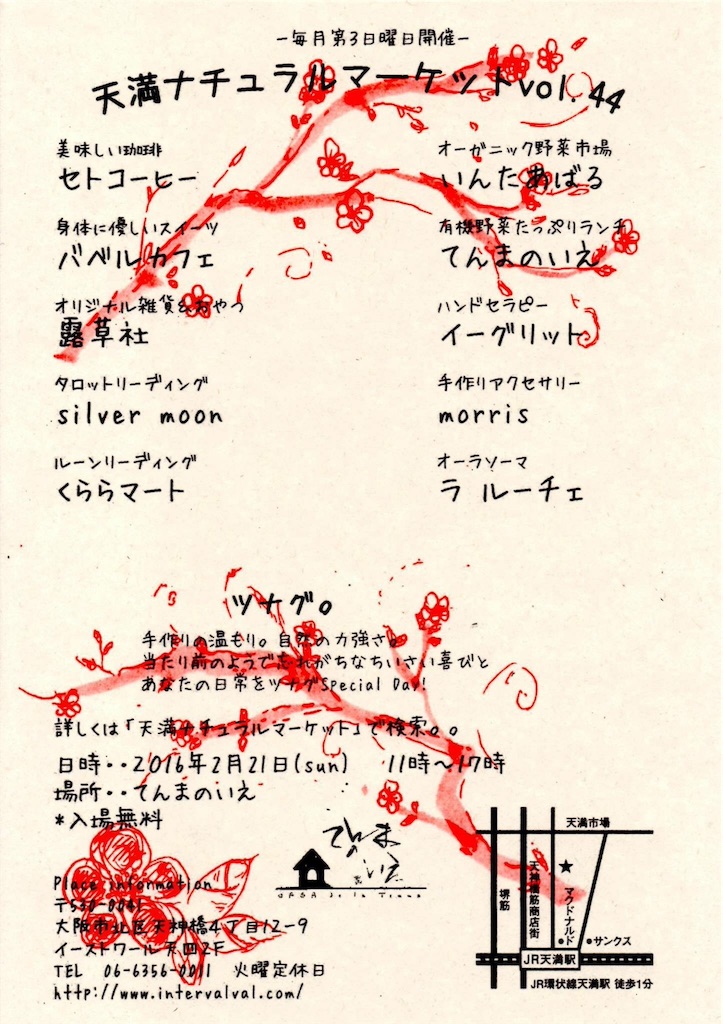 －毎月第3日曜日開催－
天満ナチュラルマーケットvol.44
美味しい珈琲
セトコーヒー
身体に優しいスイーツ
バベルカフェ
オリジナル雑貨&おやつ
露草社
タロットリーディング
silver moon
ルーンリーディング
くららマート
オーガニック野菜市場
いんたあばる
有機野菜たっぷりランチ
てんまのいえ
ハンドセラピー
イーグリット
手作りアクセサリー
morris
オーラソーマ
ラ ルーチェ
ツナグ。
手作りの温もり。自然の力強さ。
当たり前のようで忘れがちなちいさい喜びと
あなたの日常をツナグSpecial Day!
詳しくは「天満ナチュラルマーケット」で検索。。
日時・・2016年2月21日(sun) 11時～17時
場所・・てんまのいえ
*入場無料
Place information
〒530-0041
大阪市北区天神橋4丁目12-9
イーストワール天四2F
TEL 06-6356-0011 火曜定休日
http://www.intervalval.com/
てんまのいえ
天満市場
堺筋
天神橋筋商店街
★
マクドナルド
サンクス
JR天満駅
JR環状線天満駅 徒歩1分